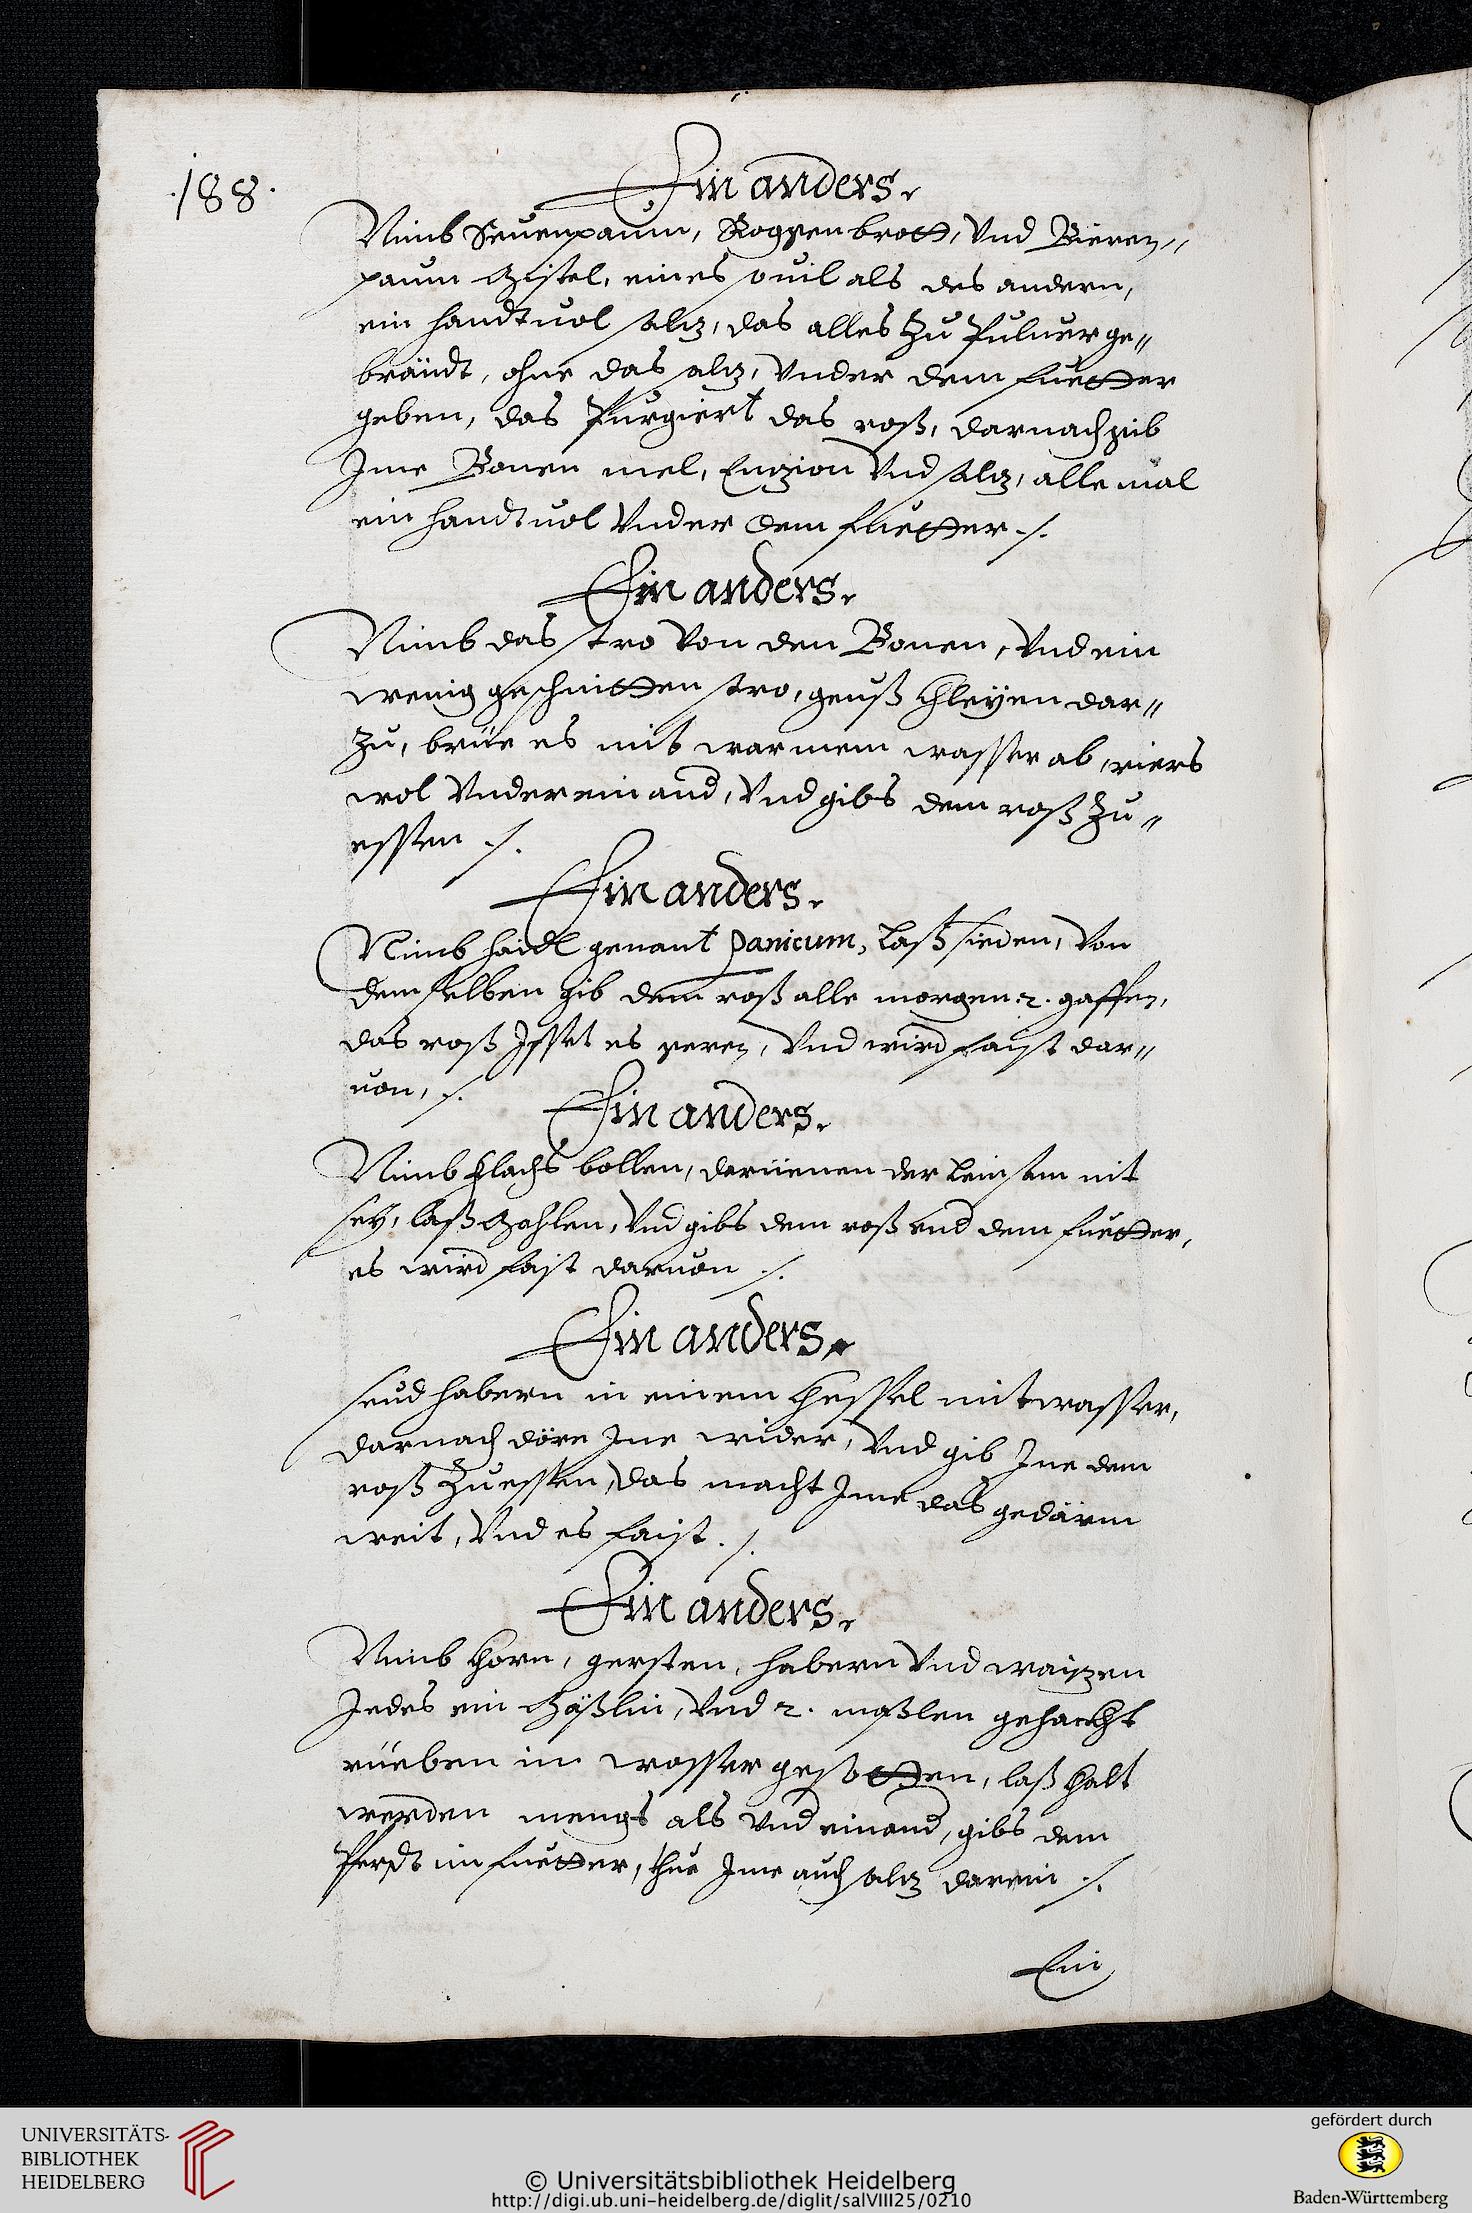 .188.
Ein anders.
Nimb Seuenpaum, Roggen brott, Vnd Bieren„
paum Mistel, eines souil als des andern,
ein handtuol saltz, das alles Zu Puluer ge„
brändt, ohne das saltz, Vnder dem fuetter
geben, das Purgiert das roß, darnach gib
Jme Bonen mel, Entzion Vnd saltz, alle mal
ein handtuol Vnder dem fuetter ./.
Ein anders.
Nimb das stro Von den Bonen, Vnd ein
wenig geschnitten stro, geuß Kleyen dar„
Zu, brüe es mit warmem wasser ab, riers
wol Vnder einand, Vnd gibs dem roß Zu„
essen ./.
Ein anders.
Nimb haidl genant Panicum, Laß sieden, Von
demselben gib dem roß alle morgen 2. gaffen,
das roß Jsset es geren, Vnd wird faist dar„
uon, ./.
Ein anders.
Nimb Flachs bollen, darinnen der Leinsam nit
sey, laß Mahlen, Vnd gibs dem roß vnd dem fuetter,
es wird faist daruon ./.
Ein anders.
Seud habern in einem Kessel mit wasser,
darnach döre Jne wider, Vnd gib Jne dem
roß Zu essen, das macht Jme das gedärm
weit, Vnd es faist ./.
Ein anders.
Nimb Korn, gersten, habern Vnd waitzen
Jedes ein Mäßlin, Vnd 2. maßlen gehackht
rüeben in wasser gesotten, laß Kalt
werden mengs als Vnd einand, gibs dem
Pferdt im fuetter, thue Jme auch saltz darein ./.
Ein
UNIVERSITÄTS-
BIBLIOTHEK
HEIDELBERG
© Universitätsbibliothek Heidelberg
http://digi.ub.uni-heidelberg.de/diglit/salVIII25/0210
gefördert durch
Baden-Württemberg